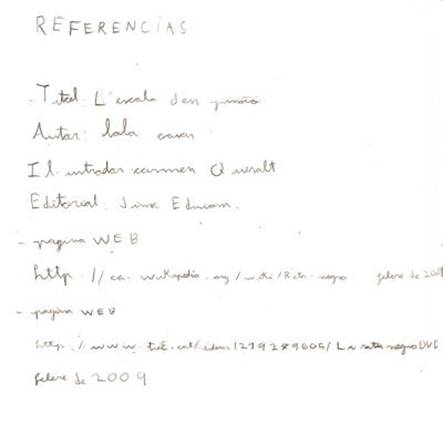 REFERENCIAS
Titol: L'escala den
Autor: lola casas
Il·lustrador carmen Queralt
Editorial: Jimx Educom.
- pagina WEB
http://ca.wikipedia.org/wiki/Rata-negra febre de 2009
- pagina WEB
http://www.tv3.cat/
febre de 2009